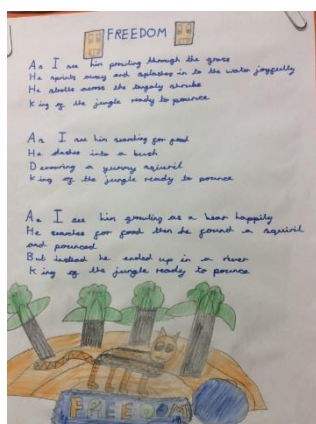 FREEDOM
As I see him prowling through the grass
He sprints away and splashes in to the water joyfully
He strolls across the shrubs
King of the jungle ready to pounce
As I see him searching for food
He dashes into a bush
Devouring a yummy squiril
King of the jungle ready to pounce
As I see him growling as a bear happily
He searches for food then he found a squiril
and pounced
But instead he ended up in a river
King of the jungle ready to pounce
FREEDOM